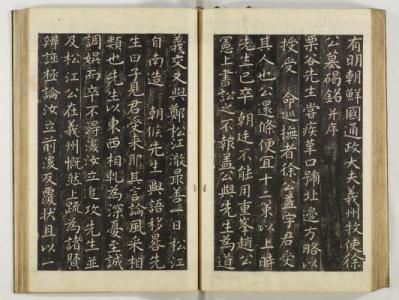 有明朝鮮國通政大夫義州牧使徐
公墓碣銘 并序
栗谷先生嘗疾草口號北邊方略以
授受 命巡撫者徐公益字君受
其人也公還條便宜十二策以上時
先生已卒 朝廷不能用重峯趙公
憲上書訟之不報蓋公與先生為道
義交又與鄭松江澈最善一日松江
自南造 朝候先生與語移晷先
生曰子見君受來耶其言論風采相
類也先生以東西相軋為深憂至誠
調娛而卒不得後汝立追攻先生並
及松江公在義州慨然上疏為諸賢
辨誣極論汝立前後反覆狀且以一